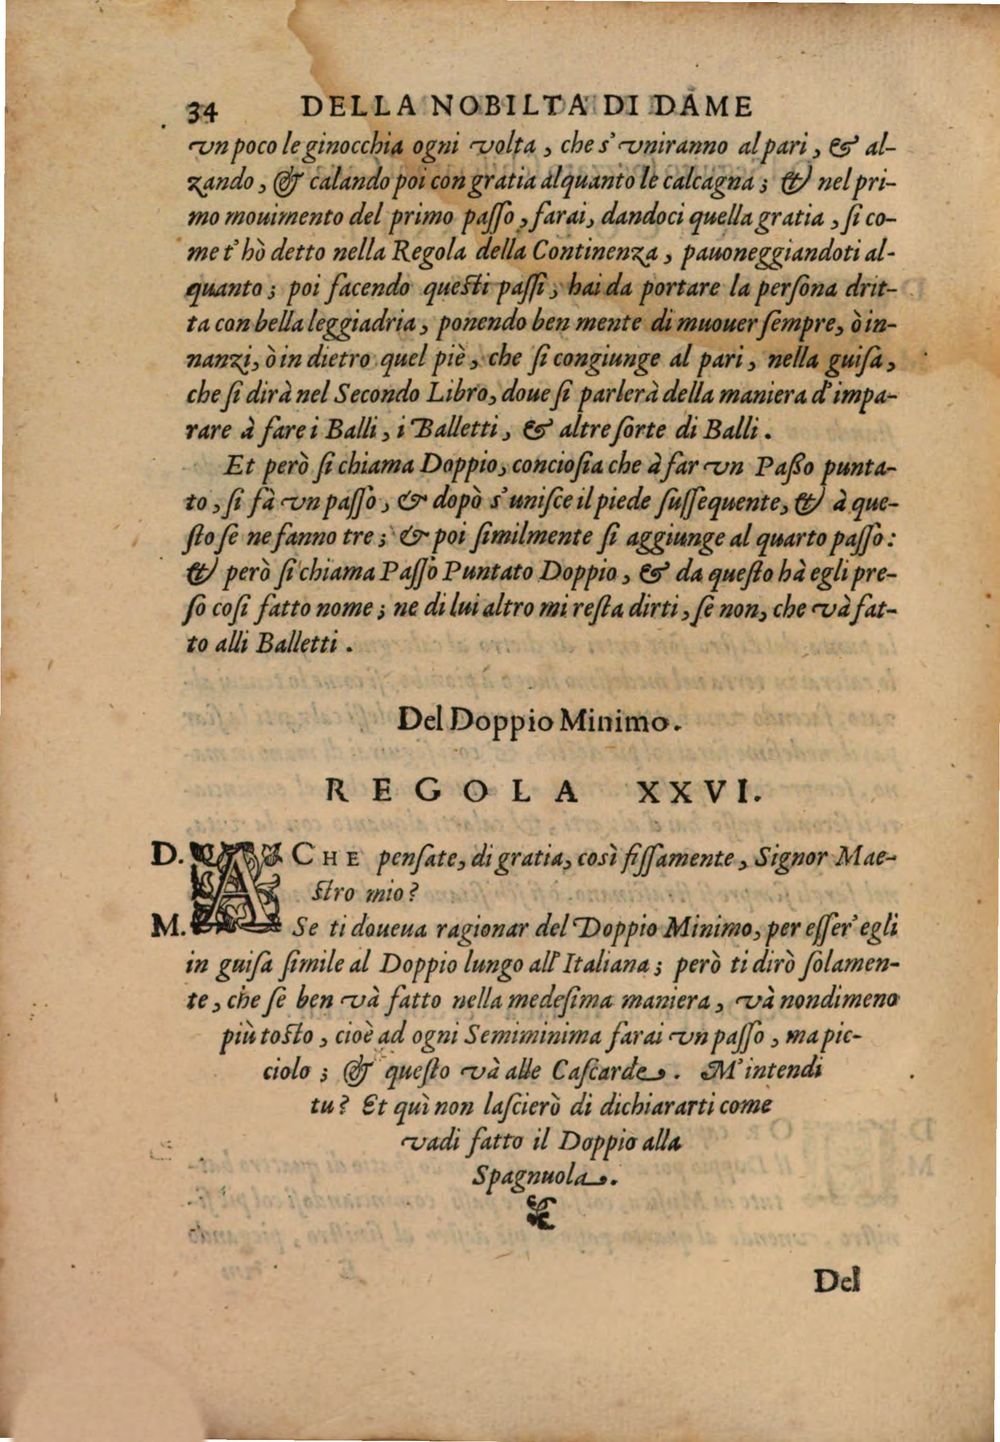 34 DELLA NOBILTA DI DAME
vn poco le ginocchia ogni volta, che s'vniranno al pari, & al-
zando, & calando poi con gratia alquanto le calcagna; & nel pri-
mo mouimento del primo paſſo, farai, dandoci quella gratia, ſi co-
me t'hò detto nella Regola della Continenza, pauoneggiandoti al-
quanto; poi facendo queſti paſſi, hai da portare la perſona drit-
ta con bella leggiadria, ponendo ben mente di muouer ſempre, ò in-
nanzi, ò in dietro quel piè, che ſi congiunge al pari, nella guiſa,
che ſi dirà nel Secondo Libro, doue ſi parlerà della maniera d'impa-
rare à fare i Balli, i Balletti, & altre ſorte di Balli.
Et però ſi chiama Doppio, concioſia che à far vn Paßo punta-
to, ſi fà vn paſſo, & dopò s'uniſce il piede ſuſſequente, & à que-
ſto ſe ne fanno tre; & poi ſimilmente ſi aggiunge al quarto paſſo:
& però ſi chiama Paſſo Puntato Doppio, & da queſto hà egli pre-
ſo coſi fatto nome; ne di lui altro mi reſta dirti, ſe non, che và fat-
to alli Balletti.
Del Doppio Minimo.
REGOLA XXVI.
D. A CHE penſate, di gratia, così fiſſamente, Signor Mae-
ſtro mio?
M. Se ti doueua ragionar del Doppio Minimo, per eſſer' egli
in guiſa ſimile al Doppio lungo all'Italiana; però ti dirò ſolamen-
te, che ſe ben và fatto nella medeſima maniera, và nondimeno
più toſto, cioè ad ogni Semiminima farai vn paſſo, ma pic-
ciolo; & queſto và alle Caſcarde. M'intendi
tu? Et quì non laſcierò di dichiararti come
vadi fatto il Doppio alla
Spagnuola.
Del